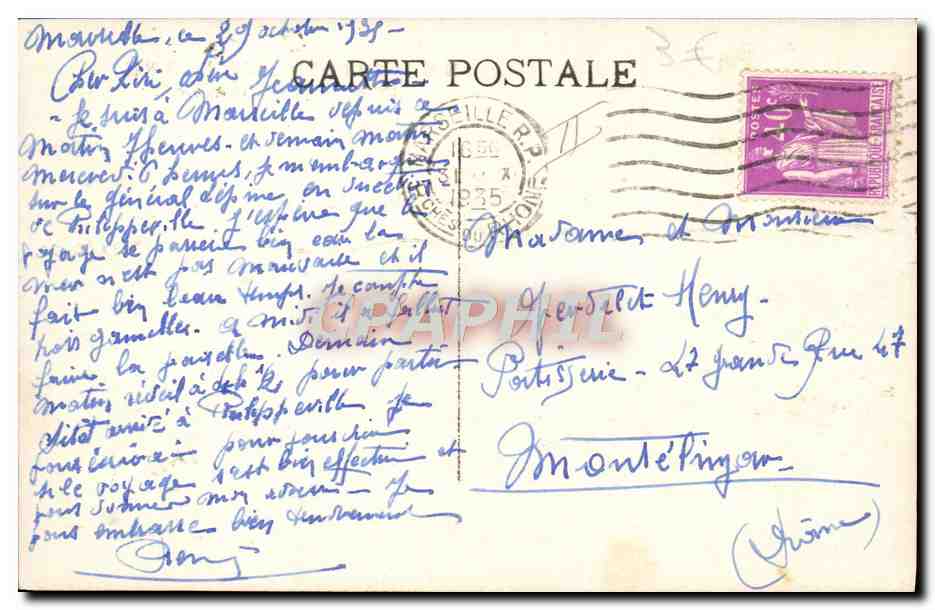 Marseille, ce 29 octobre 1935 -
Cher Zizi, chère Jeannette
- Je suis à Marseille depuis ce
matin 7 heures - et demain matin
mercredi 6 heures, je m'embarque
sur le général
de Philippeville J'espère que le
voyage se passera bien car la
mer n'est pas mauvaise et il
fait bien beau temps. Je compte
trois gamelles - à midi il a fallut
faire la . Demain
matin réveil à pour partir
Sitôt arrivé à Philippeville Je
vous écrirai pour vous dire
si le voyage s'est bien effectué et
vous donner mon adresse - Je
vous embrasse bien tendrement
Remy
CARTE POSTALE
3 €
MARSEILLE R.P.
1935
POSTES
40c
REPUBLIQUE FRANÇAISE
Madame et Monsieur
Henry -
Patisserie - 47 grande Rue 47
Montélimar -
(Drôme)
CARAPHIL